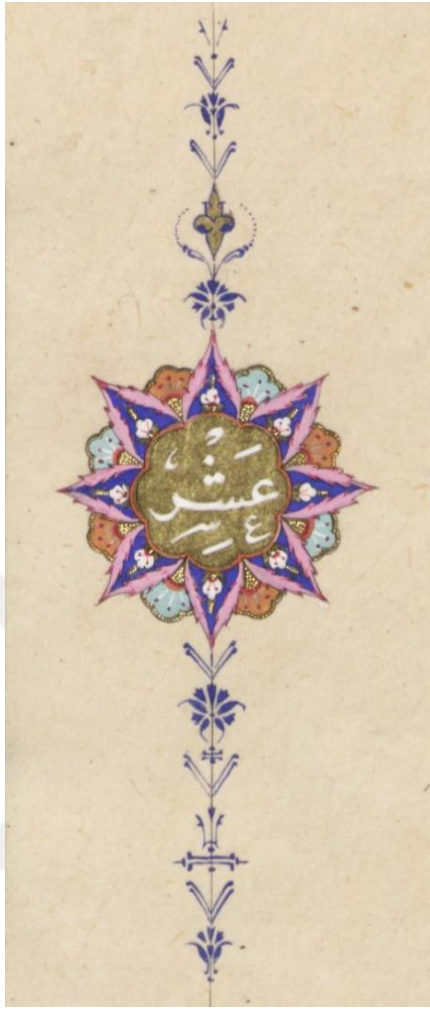 عشر